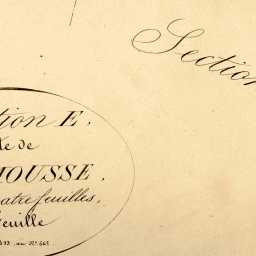 Section
tion E.
te de
HOUSSE.
atre feuilles,
feuille